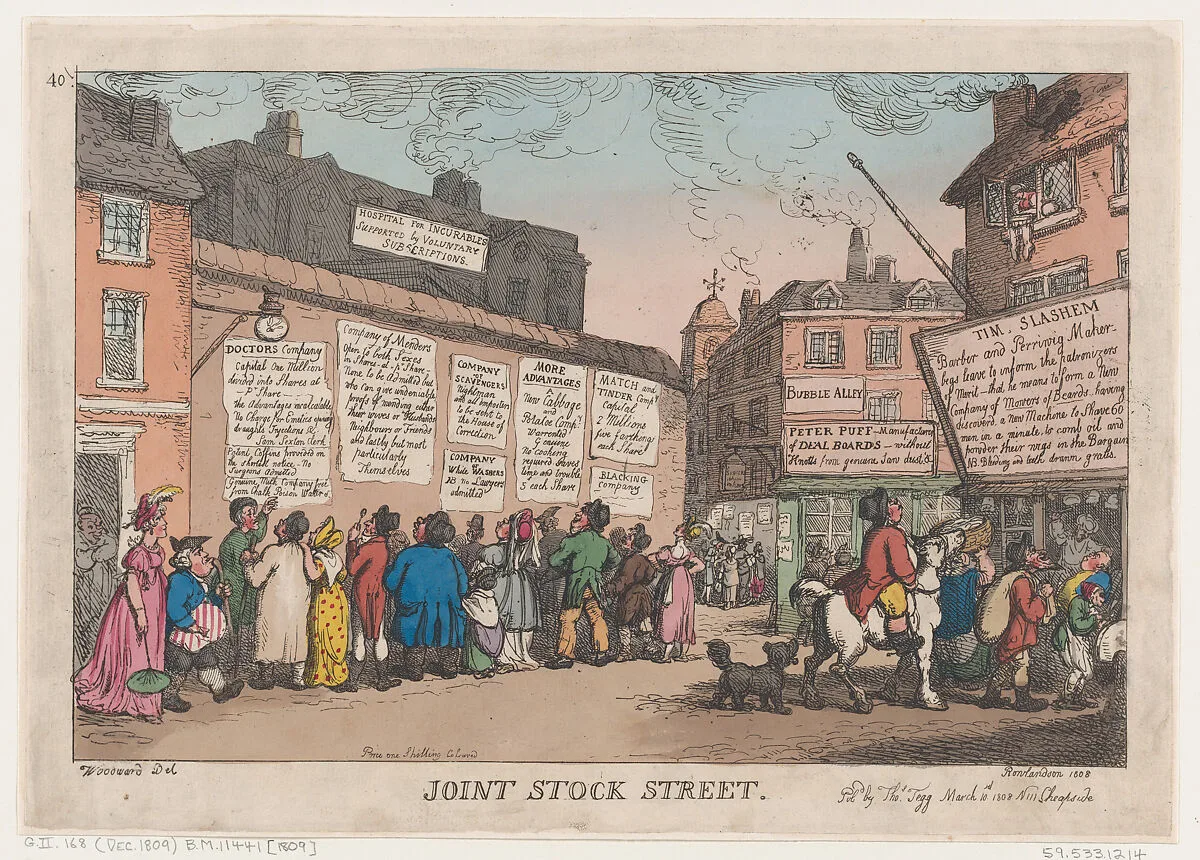 40
HOSPITAL for INCURABLES
Supported by VOLUNTARY
SUBSCRIPTIONS.
DOCTORS Company
Capital One Million
divided into Shares at
Pr Share
the Advantages incalculable
No Charge for Emetics
Injections &c
Sam Sexton Clerk
Patent Coffins provided on
the Shortest notice - No
Surgeons Admitted
Genuine Milk Company free
from Chalk Poison Water &c
Company of Menders
Open to both Sexes
in Shares - at - Pr Share -
None to be Admitted but
who can give undeniable
proofs of mending either
their wives or Husbands
Neighbours or Friends
and lastly but most
particularly
Themselves
COMPANY
of
SCAVENGERS
Nightmen
all Imposters
to be sent to
the House of
Correction
COMPANY
of
White WASHERS
NB no Lawyers
admitted
MORE
ADVANTAGES
New Cabbage
and
Potatoe Compy
Warranted
Genuine
No Cooking
required Saves
time and trouble
5 each Share
MATCH and
TINDER Compy
Capital
2 Millions
five farthings
each Share
BLACKING
Company
BUBBLE ALLEY
PETER PUFF - Manufactory
of DEAL BOARDS - without
Knots from genuine Saw dust &c
TIM. SLASHEM
Barber and Perriwig Maker -
begs leave to inform the patronizers
of Merit - that he means to form a New
Company of Mowers of Beards having
discoverd a new Machine to Shave 60
men in a minute, to comb oil and
powder their wigs in the Bargain
NB. Bleeding and teeth drawn gratis.
Price one Shilling Coloured
Woodward Del
Rowlandson 1808
JOINT STOCK STREET.
Pubd by Thos Tegg March 10d 1808 N 111 Cheapside
G.II.168 (DEC.1809) B.M.11441 [1809]
59.533.1214